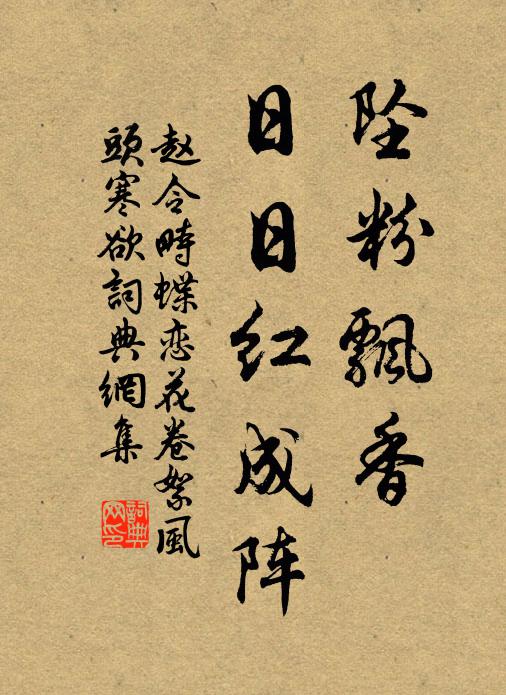 坠粉飘香
日日红成阵
赵令畤蝶恋花卷絮风
頭寒欲詞典網集
詞典网印